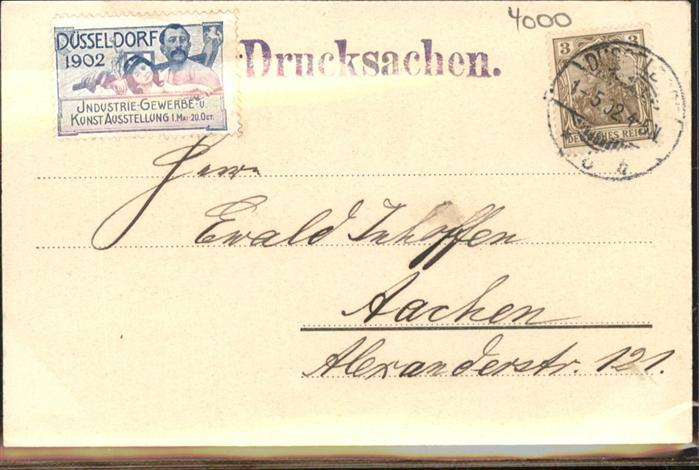 4000
DÜSSELDORF
1902
JNDUSTRIE-GEWERBE-U.
KUNST AUSSTELLUNG 1.MAI-20.OCT.
Drucksachen.
3 3
DEUTSCHES REICH
Herrn
Ewald Inhoffen
Aachen
Alexanderstr. 121.